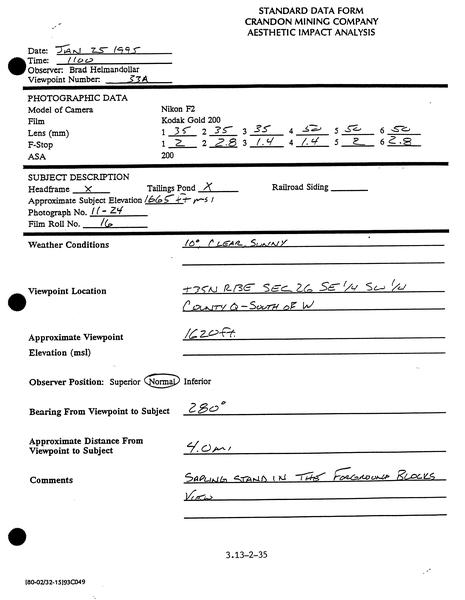 STANDARD DATA FORM
CRANDON MINING COMPANY
AESTHETIC IMPACT ANALYSIS
Date: JAN 25 1995
Time: 1100
Observer: Brad Heimandollar
Viewpoint Number: 33A
PHOTOGRAPHIC DATA
Model of Camera Nikon F2
Film Kodak Gold 200
Lens (mm) 1 35 2 35 3 35 4 50 5 50 6 50
F-Stop 1 2 2 2.8 3 1.4 4 1.4 5 2 6 2.8
ASA 200
SUBJECT DESCRIPTION
Headframe X Tailings Pond X Railroad Siding
Approximate Subject Elevation 1665 ft msl
Photograph No. 11-24
Film Roll No. 16
Weather Conditions 10°, CLEAR, SUNNY
Viewpoint Location T35N R13E SEC 26 SE 1/4 SW 1/4
COUNTY Q - SOUTH OF W
Approximate Viewpoint 1620 ft.
Elevation (msl)
Observer Position: Superior Normal Inferior
Bearing From Viewpoint to Subject 280°
Approximate Distance From
Viewpoint to Subject 4.0 mi
Comments SAPLING STAND IN THE FORGROUND BLOCKS
VIEW
3.13-2-35
[80-02/32-15]93C049